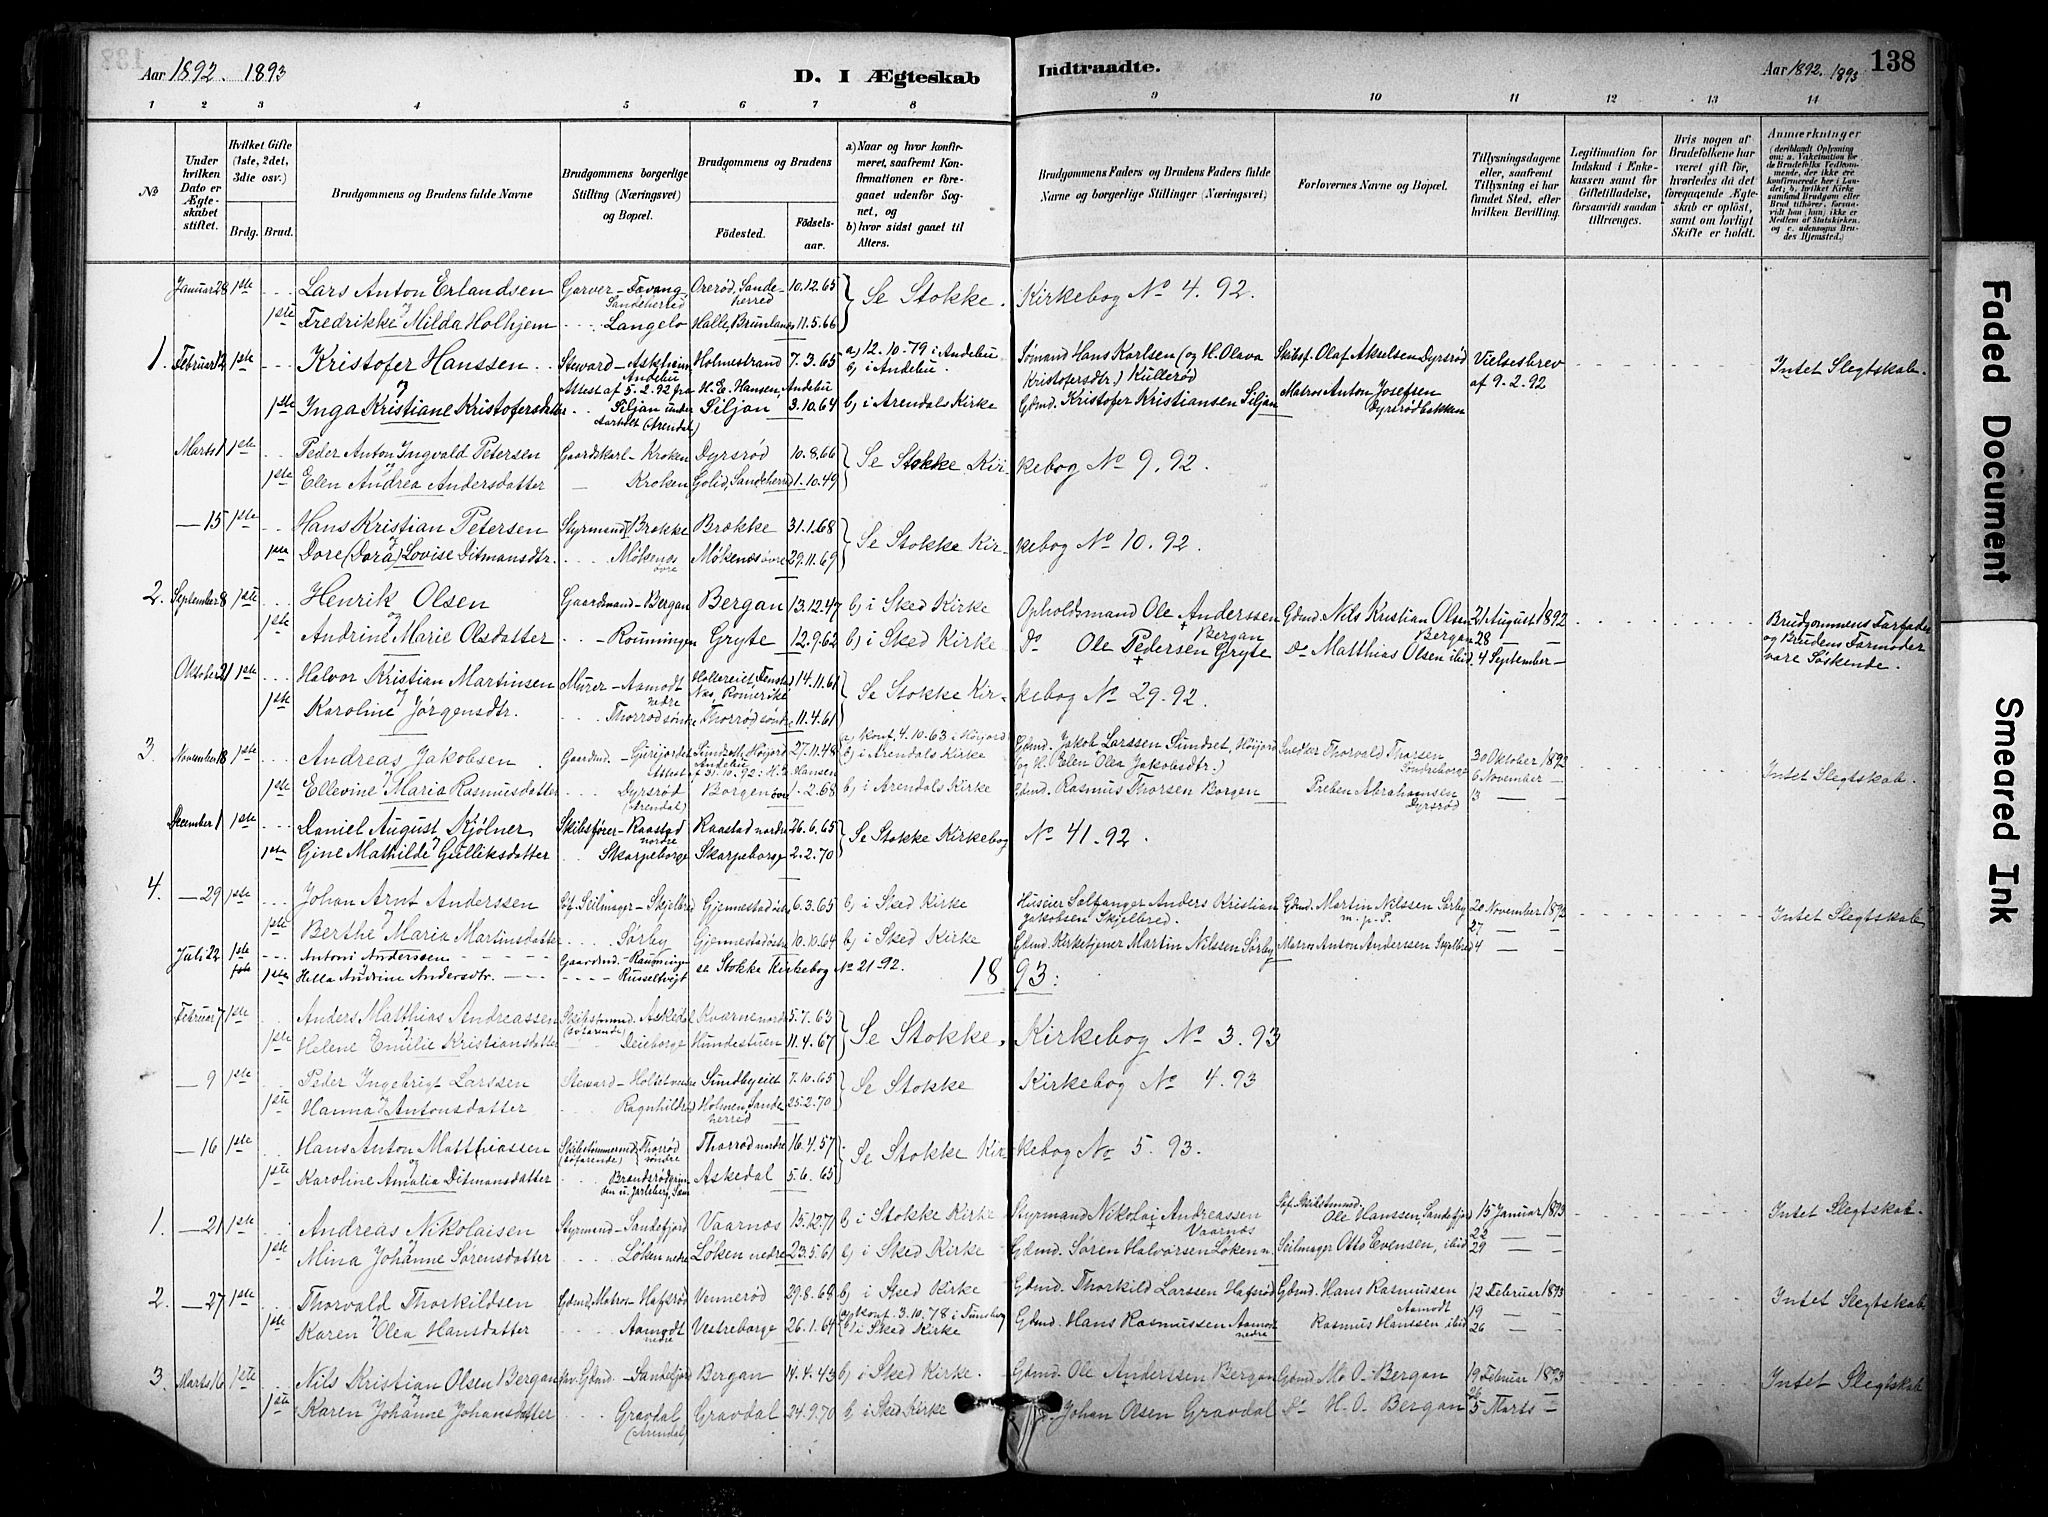 Aar 1892. 1893
D. I Ægteskab Indtraadte.
Aar 1892. 1893 138
1 2 3 4 5 6 7 8 9 10 11 12 13 14
No
Under hvilken Dato er Ægteskabet stiftet.
Hvilket Gifte (1ste, 2det, 3die osv.)
Brdg. Brud.
Brudgommens og Brudens fulde Navne
Brudgommens borgerlige Stilling (Næringsvei) og Bopæl.
Brudgommens og Brudens
Födested. Födselsaar.
a) Naar og hvor konfirmeret, saafremt Konfirmationen er foregaaet udenför Sognet, og
b) hvor sidst gaaet til Alters.
Brudgommens Faders og Brudens Faders fulde Navne og borgerlige Stillinger (Næringsvei)
Forlovernes Navne og Bopæl.
Tillysningsdagene eller, saafremt Tillysning ei har fundet Sted, efter hvilken Bevilling.
Legitimation for Indskud i Enkekassen samt for Giftetilladelse, forsaavidt saadan tiltrænges.
Hvis nogen af Brudefolkene har været gift før, hvorledes da det foregaaende Ægteskab er oplöst, samt om lovligt Skifte er holdt.
Anmærkninger (deriblandt Oplysning om: a. Vakcination for de Brudefolks Vedkommende, der ikke ere konfirmerede her i Landet; b. hvilket Kirkesamfund Brudgom eller Brud tilhörer, forsaavidt han (hun) ikke er Medlem af Statskirken, og c. udensogns Brudes Hjemsted.)
Januar 28 1ste Lars Anton Erlandsen Garver - Fævang, Sandeherred Orerød, Sandeherred 10.12.65 Se Stokke Kirkebog No 4. 92.
1ste Fredrikke Milda Holhjem Langelo Halle, Brunlanes 11.5.66
1. Februar 12 1ste Kristofer Hanssen Steward - Askheim Andebu Holmestrand 7.3.65 a) 12.10.79 i Andebu b) i Andebu Sømand Hans Karlsen (og H. Olava Kristofersdtr.) Kullerød Skibsf. Olaf Akselsen Dyrsrød Vielsesbrev af 9.2.92 Intet Slegtskab.
Attest af 5.2.92 fra H. E. Hansen, Andebu
og
1ste Inga Kristiane Kristofersdatter Siljan under Aarholt (Arendal) Siljan 3.10.64 b) i Arendals Kirke Gdmd. Kristofer Kristiansen Siljan Matros Anton Josefsen Dyrsrødbakken
Marts 1 1ste Peder Anton Ingvald Petersen Gaardskarl - Kroken Dyrsrød 10.8.66 Se Stokke Kirkebog No 9. 92.
og
1ste Elen Andrea Andersdatter Kroken Golid, Sandeherred 1.10.49
— 15 1ste Hans Kristian Petersen Styrmand - Brække Brække 31.1.68 Se Stokke Kirkebog No 10. 92.
og
1ste Dore (Dora) Lovise Ditmansdtr. Møkenes øvre Møkenes øvre 29.11.69
2. September 8 1ste Henrik Olsen Gaardmand - Bergan Bergan 13.12.47 b) i Sked Kirke Opholdsmand Ole Anderssen Bergan Gdmd. Nils Kristian Olsen Bergan 21 August 1892
og
1ste Andrine Marie Olsdatter Rounningen Gryte 12.9.62 b) i Sked Kirke Do Ole Pedersen Gryte Do Matthias Olsen ibid 28 — 4 September — Brudgommens Farfader og Brudens Farmoder vare Søskende.
Oktober 21 1ste Halvor Kristian Martinsen Murer - Aamodt nedre Nes, Romerike 14.11.61 Se Stokke Kirkebog No 29. 92.
og
1ste Karoline Jørgensdtr. Thorrød søndre Thorrød søndre 11.4.61
3. November 18 1ste Andreas Jakobsen Gaardmd. Sundseth Høijord Andebu 27.11.48 a) konf. 4.10.63 i Høijord b) i Arendals Kirke Gdmd. Jakob Larssen Sundset, Høijord (og H. Elen Olea Jakobsdtr.) Snedker Thorvald Thorsen Søndreborge 30 Oktober 1892 Intet Slegtskab.
Attest af 31.10.92: H. E. Hansen
og
1ste Ellevine Maria Rasmusdatter Dyrsrød (Arendal) Borgen øvre 1.2.68 b) i Arendals Kirke Gdmd. Rasmus Thorsen Borgen Preben Abrahamsen Dyrsrød 6 November — 13 —
December 1 1ste Daniel August Kjølner Skibsfører - Raastad nordre Raastad nordre 26.6.65 Se Stokke Kirkebog No 41. 92.
og
1ste Gine Mathilde Gulliksdatter Skarpeborge Skarpeborge 2.2.70
4. — 29 1ste Johan Arnt Anderssen Seilmager - Skjelbred Gjennestad østre 6.3.65 b) i Sked Kirke Huseier Solfanger Anders Kristian Jakobsen Skjelbred. Gdmd. Martin Nilssen Sørby m. p. P. 20 November 1892 27 — Intet Slegtskab
og
1ste Berthe Maria Martinsdatter Sørby Gjennestad østre 10.10.64 b) i Sked Kirke Gdmd. Kirketjener Martin Nilssen Sørby Matros Anton Anderssen Skjelbred 4 —
Juli 22 1ste Antoni Anderssen Gaardmd. - Raunningen se Stokke Kirkebog No 21 92.
1ste Hella Andrine Andersdtr. Russeltvigt
1893:
Februar 7 1ste Anders Matthias Andreassen Skibstømmd. (søfarende) Askedal Kværne nordre 5.7.63 Se Stokke Kirkebog No 3. 93
og
1ste Helene Emilie Kristiansdatter Deieborge Hundestuen 11.4.67
— 9 1ste Peder Ingebrigt Larssen Steward - Holtet vestre Sundbyeiet 7.10.65 Se Stokke Kirkebog No 4. 93
og
1ste Hanna Antonsdatter Ragnhildrød Holmen, Sandeherred 25.2.70
— 16 1ste Hans Anton Matthiassen Skibstømmermd. (søfarende) Thorrød søndre Thorrød nordre 16.4.57 Se Stokke Kirkebog No 5. 93.
og
1ste Karoline Amalia Ditmansdatter u. Jarlsberg Askedal 5.6.65
1. — 21 1ste Andreas Nikolaisen Styrmand - Sandefjord Vaarnæs 15.12.71 b) i Stokke Kirke Styrmand Nikolai Andreassen Vaarnæs Skibstmmd Ole Hanssen, Sandefjord 15 Januar 1893 Intet Slegtskab.
og
1ste Mina Johanne Sørensdatter Løken nedre Løken nedre 23.5.61 b) i Sked Kirke Gdmd. Søren Halvorsen Løken n. Seilmager Otto Evensen, ibid 22 — 29 —
2. — 27 1ste Thorvald Thorkildsen Gdmd. Matros - Hafsrød Vennerød 29.8.69 b) i Sked Kirke Gdmd. Thorkild Larssen Hafsrød Gdmd. Hans Rasmussen Aamodt 12 Februar 1893 Intet Slegtskab
og
1ste Karen Olea Hansdatter Aamodt nedre Vestreborge 26.1.64 a) konf. 3.10.78 i Tunsberg b) i Sked Kirke Gdmd. Hans Rasmussen Aamodt nedre Rasmus Hanssen ibid 19 — 26 —
3. Marts 16 1ste Nils Kristian Olsen Bergan Gdmd. - Sandefjord Bergan 14.4.43 b) i Sked Kirke. Gdmd. Ole Anderssen Bergan Gdmd. M. O. Bergan 19 Februar 1893 Intet Slegtskab
og
1ste Karen Johanne Johansdatter Gravdal (Arendal) Gravdal 24.9.70 b) i Sked Kirke Johan Olsen Gravdal Do H. O. Bergan 26 5 Marts —
Faded Document
Smeared Ink